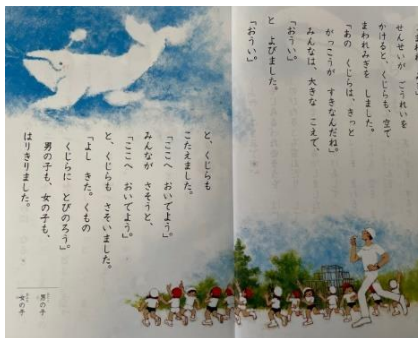 せんせいが ごうれいを
かけると、くじらも、空で
まわれみぎを しました。
「あの くじらは、きっと
がっこうが すきなんだね。」
みんなは、大きな こえで、
「おうい。」
と よびました。
「おうい。」
と、くじらも
こたえました。
「ここへ おいでよう。」
みんなが さそうと、
「ここへ おいでよう。」
と、くじらも さそいました。
「よし きた。くもの
くじらに とびのろう。」
男の子も、女の子も、
はりきりました。
男の子
女の子